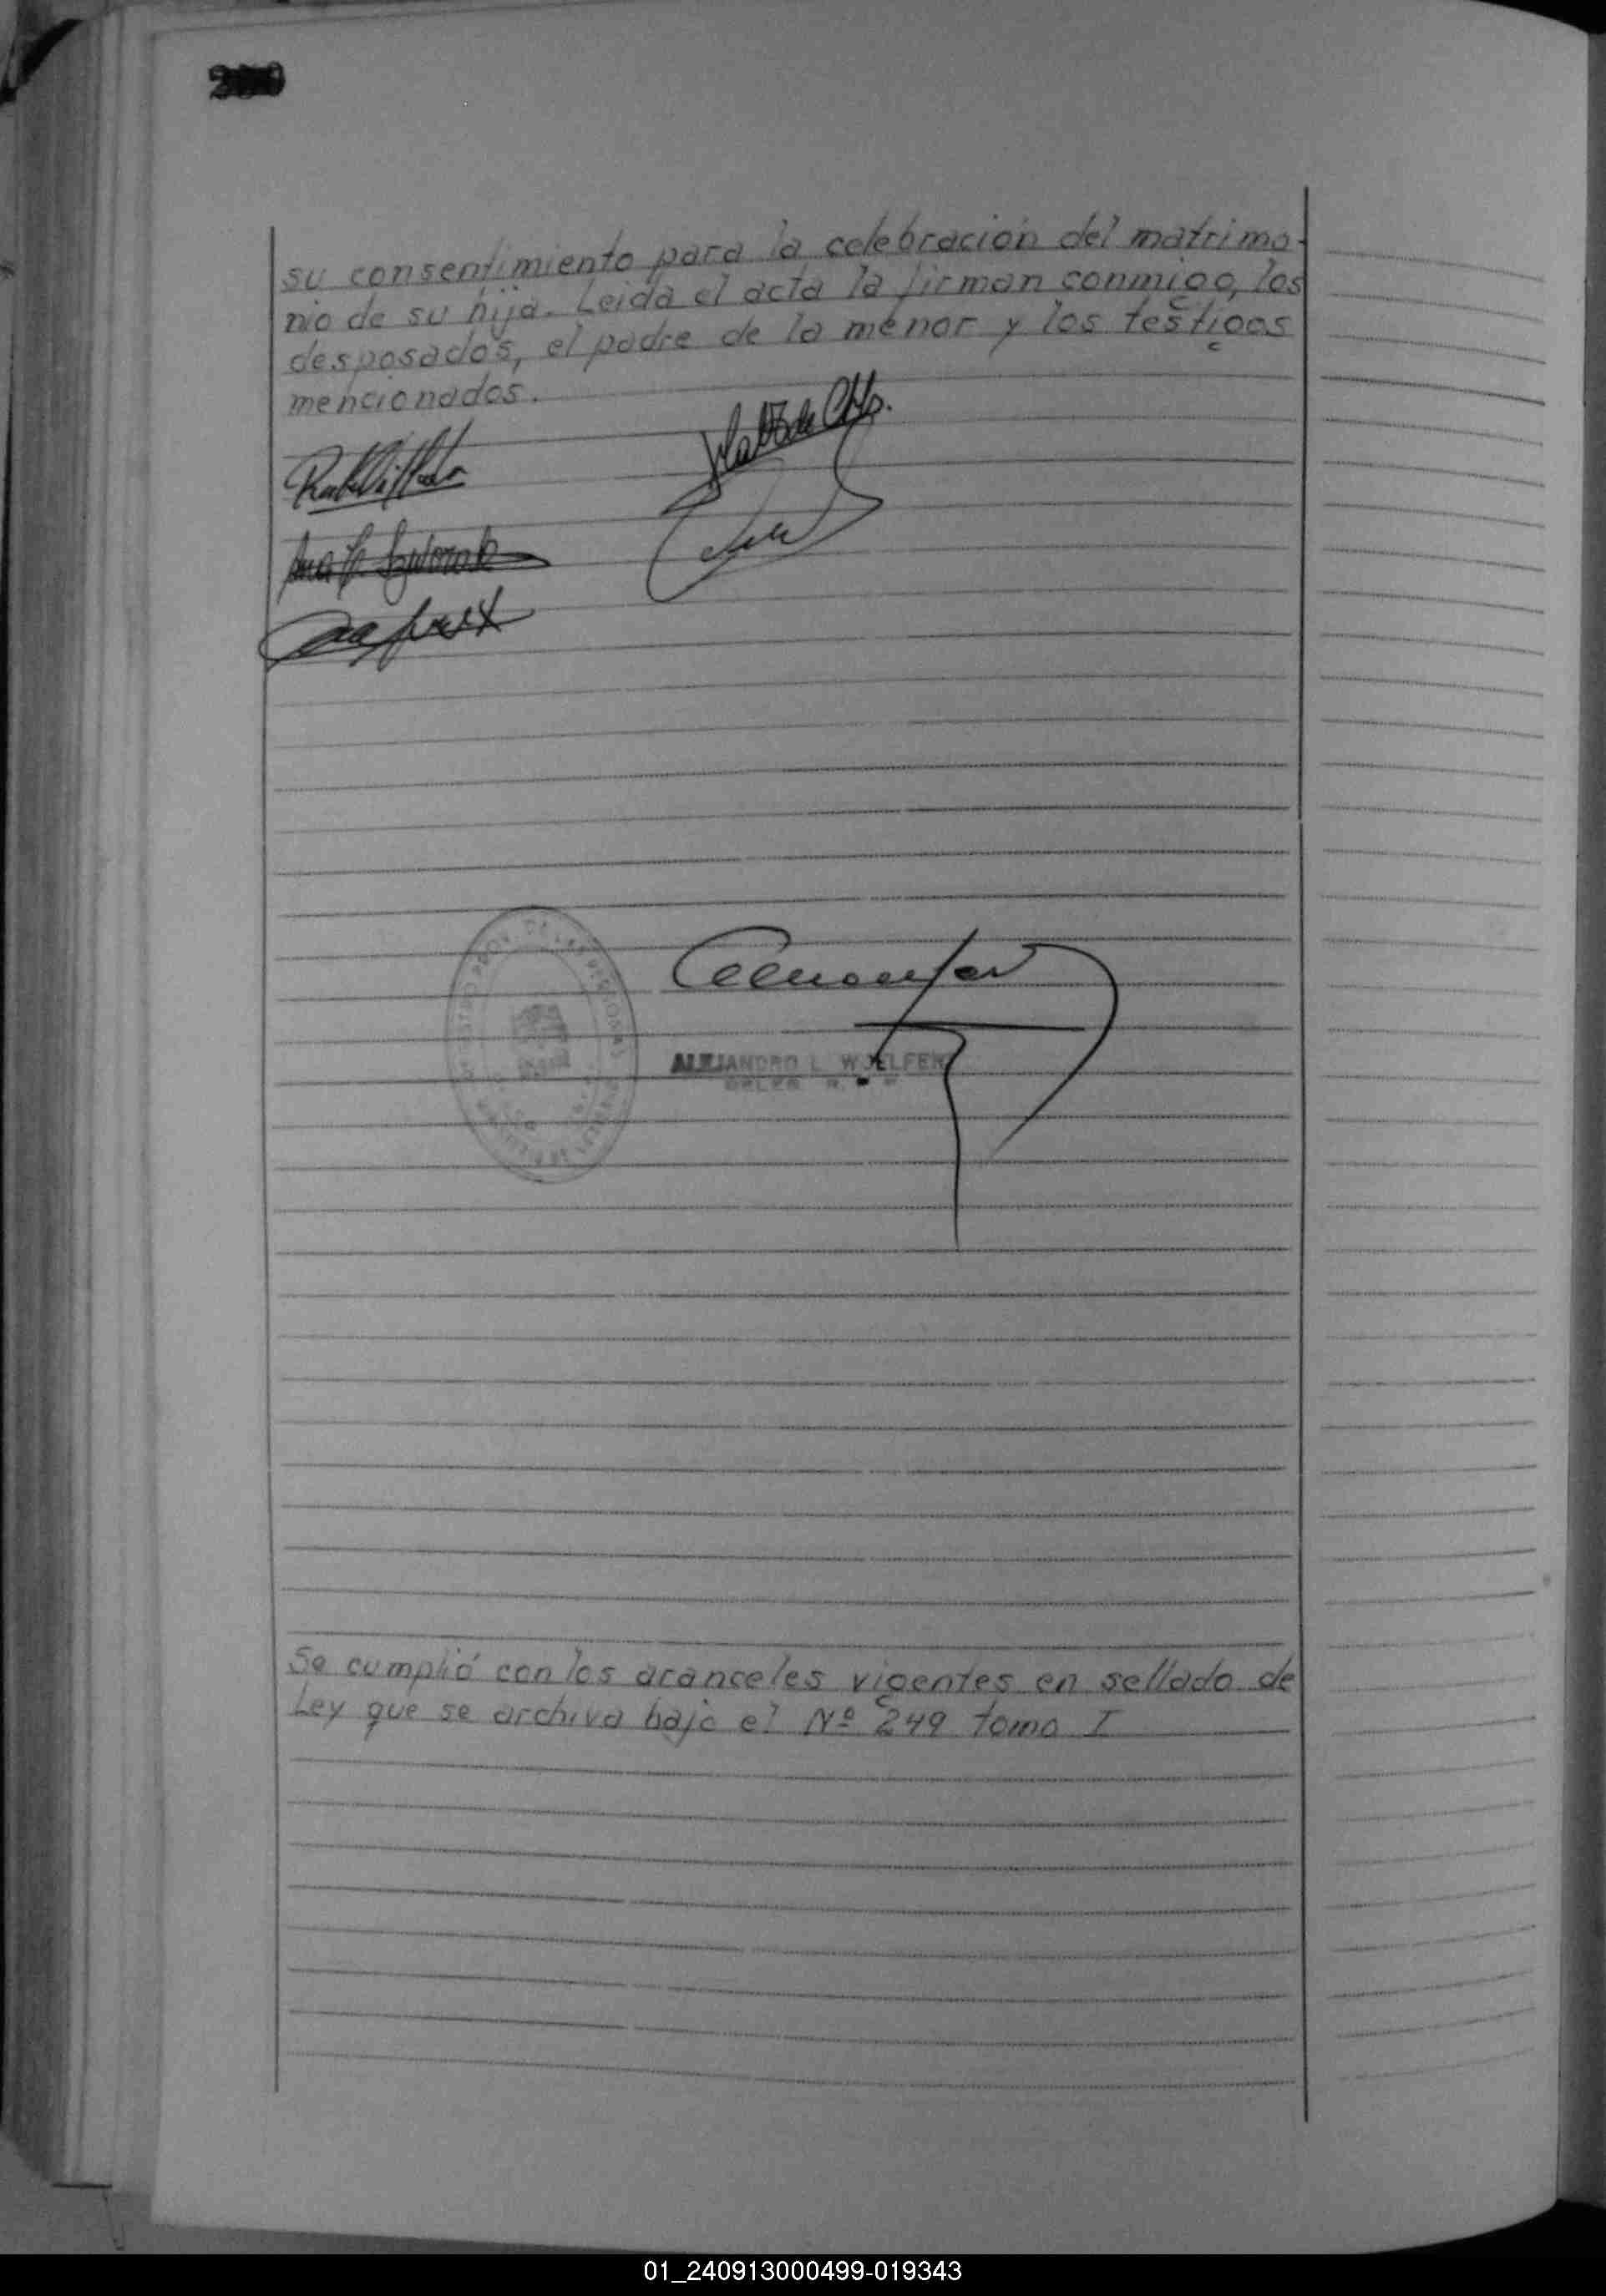 su consentimiento para la celebración del matrimo-
nio de su hija. Leida el acta la firman conmigo, los
desposados, el padre de la menor y los testigos
mencionados.
ALEJANDRO L.
Se cumplió con los aranceles vigentes en sellado de
Ley que se archiva bajo el Nº 249 tomo I
01_240913000499-019343